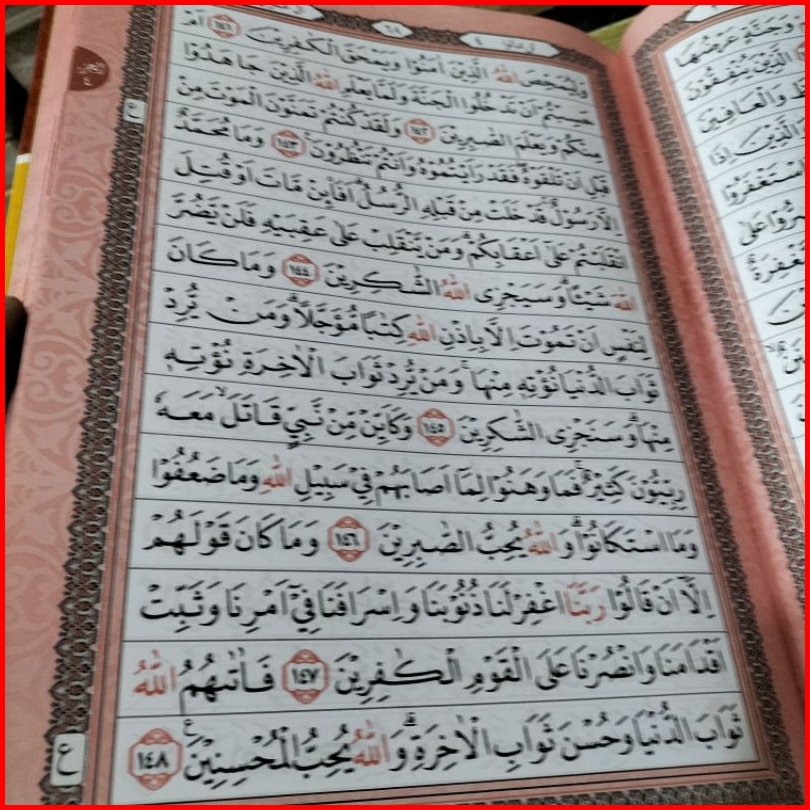 ٦٨
وَلِيُمَحِّصَ اللّٰهُ الَّذِيْنَ اٰمَنُوْا وَيَمْحَقَ الْكٰفِرِيْنَ ۝١٤١ اَمْ
حَسِبْتُمْ اَنْ تَدْخُلُوا الْجَنَّةَ وَلَمَّا يَعْلَمِ اللّٰهُ الَّذِيْنَ جَاهَدُوْا
مِنْكُمْ وَيَعْلَمَ الصّٰبِرِيْنَ ۝١٤٢ وَلَقَدْ كُنْتُمْ تَمَنَّوْنَ الْمَوْتَ مِنْ
قَبْلِ اَنْ تَلْقَوْهُۖ فَقَدْ رَاَيْتُمُوْهُ وَاَنْتُمْ تَنْظُرُوْنَ ۝١٤٣ وَمَا مُحَمَّدٌ
اِلَّا رَسُوْلٌۚ قَدْ خَلَتْ مِنْ قَبْلِهِ الرُّسُلُۗ اَفَا۟ئِنْ مَّاتَ اَوْ قُتِلَ
انْقَلَبْتُمْ عَلٰٓى اَعْقَابِكُمْۗ وَمَنْ يَّنْقَلِبْ عَلٰى عَقِبَيْهِ فَلَنْ يَّضُرَّ
اللّٰهَ شَيْـًٔاۗ وَسَيَجْزِى اللّٰهُ الشّٰكِرِيْنَ ۝١٤٤ وَمَا كَانَ
لِنَفْسٍ اَنْ تَمُوْتَ اِلَّا بِاِذْنِ اللّٰهِ كِتٰبًا مُّؤَجَّلًاۗ وَمَنْ يُّرِدْ
ثَوَابَ الدُّنْيَا نُؤْتِهٖ مِنْهَاۚ وَمَنْ يُّرِدْ ثَوَابَ الْاٰخِرَةِ نُؤْتِهٖ
مِنْهَاۗ وَسَنَجْزِى الشّٰكِرِيْنَ ۝١٤٥ وَكَاَيِّنْ مِّنْ نَّبِيٍّ قَاتَلَۙ مَعَهٗ
رِبِّيُّوْنَ كَثِيْرٌۚ فَمَا وَهَنُوْا لِمَآ اَصَابَهُمْ فِيْ سَبِيْلِ اللّٰهِ وَمَا ضَعُفُوْا
وَمَا اسْتَكَانُوْاۗ وَاللّٰهُ يُحِبُّ الصّٰبِرِيْنَ ۝١٤٦ وَمَا كَانَ قَوْلَهُمْ
اِلَّآ اَنْ قَالُوْا رَبَّنَا اغْفِرْ لَنَا ذُنُوْبَنَا وَاِسْرَافَنَا فِيْٓ اَمْرِنَا وَثَبِّتْ
اَقْدَامَنَا وَانْصُرْنَا عَلَى الْقَوْمِ الْكٰفِرِيْنَ ۝١٤٧ فَاٰتٰىهُمُ اللّٰهُ
ثَوَابَ الدُّنْيَا وَحُسْنَ ثَوَابِ الْاٰخِرَةِۗ وَاللّٰهُ يُحِبُّ الْمُحْسِنِيْنَ ۝١٤٨
ع